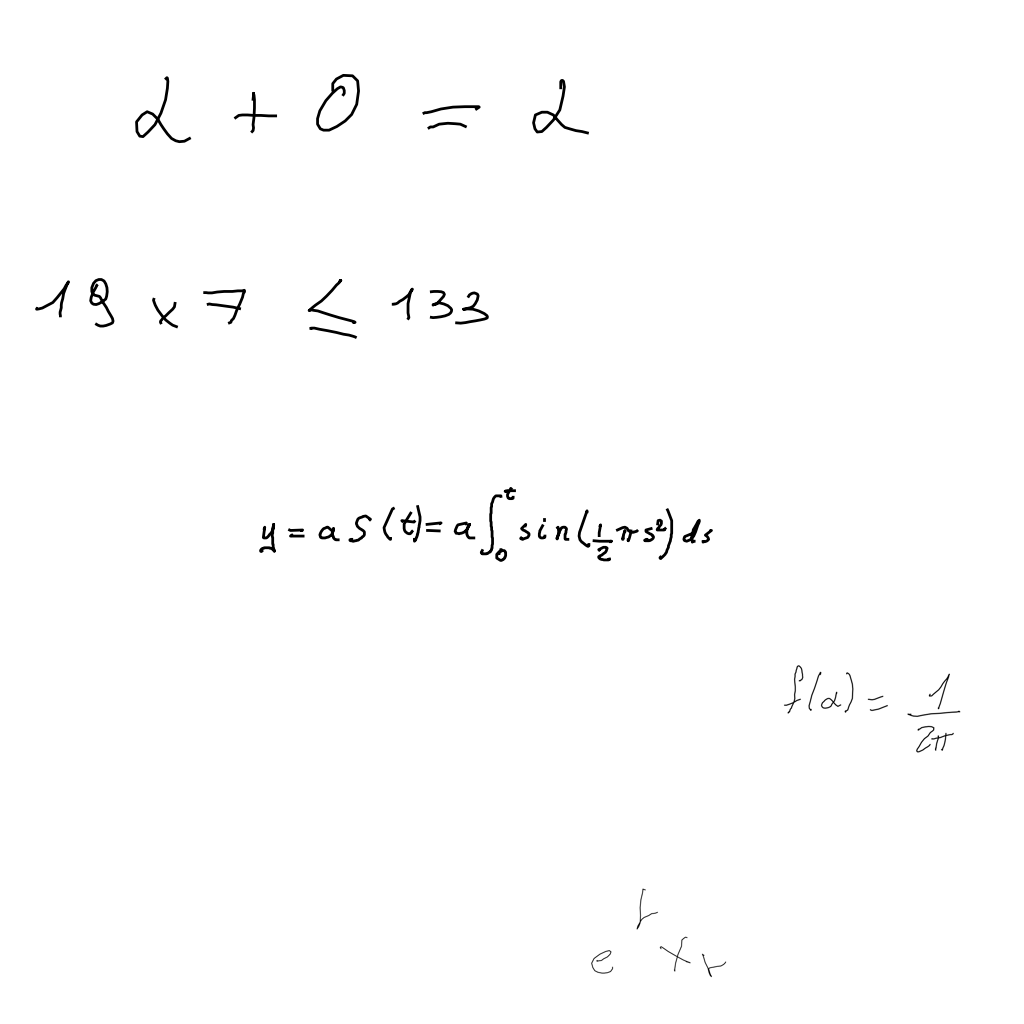 α + 0 = α
19 × 7 ≤ 133
y = a S(t) = a ∫₀ᵗ sin(½ πs²) ds
f(α) = 1/2π